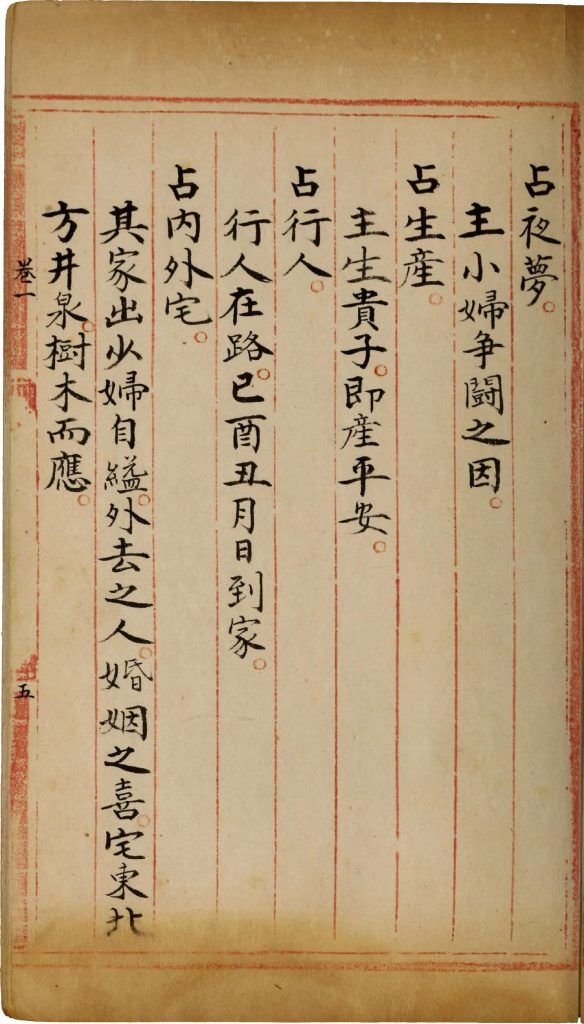 占夜夢。
主小婦争鬪之因。
占生產。
主生貴子。即產平安。
占行人。
行人在路。巳酉丑月日到家。
占内外宅。
其家出少婦自縊。外去之人。婚姻之喜。宅東北
方井泉。樹木而應。
卷一
五